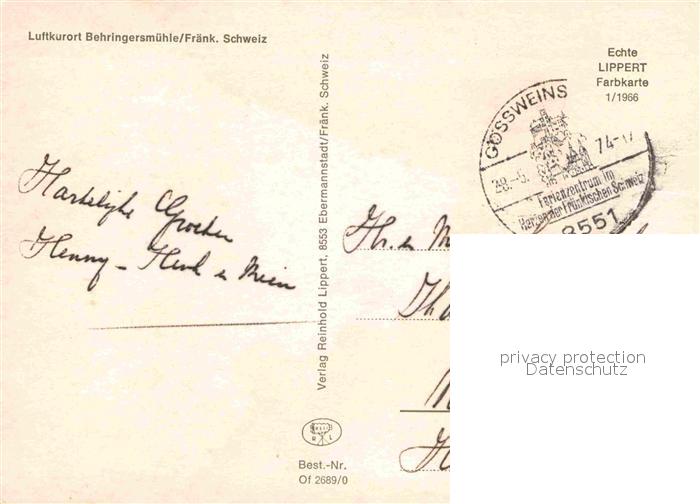 Luftkurort Behringersmühle/Fränk. Schweiz
Echte
LIPPERT
Farbkarte
1/1966
GÖSSWEINS
28.-6. 74-17
Ferienzentrum im
Herzen der Fränkischen Schweiz
8551
Hartelijke Groeten
Henny - Henk en Mien
Verlag Reinhold Lippert, 8553 Ebermannstadt/Fränk. Schweiz
R L
Best.-Nr.
Of 2689/0
privacy protection
Datenschutz